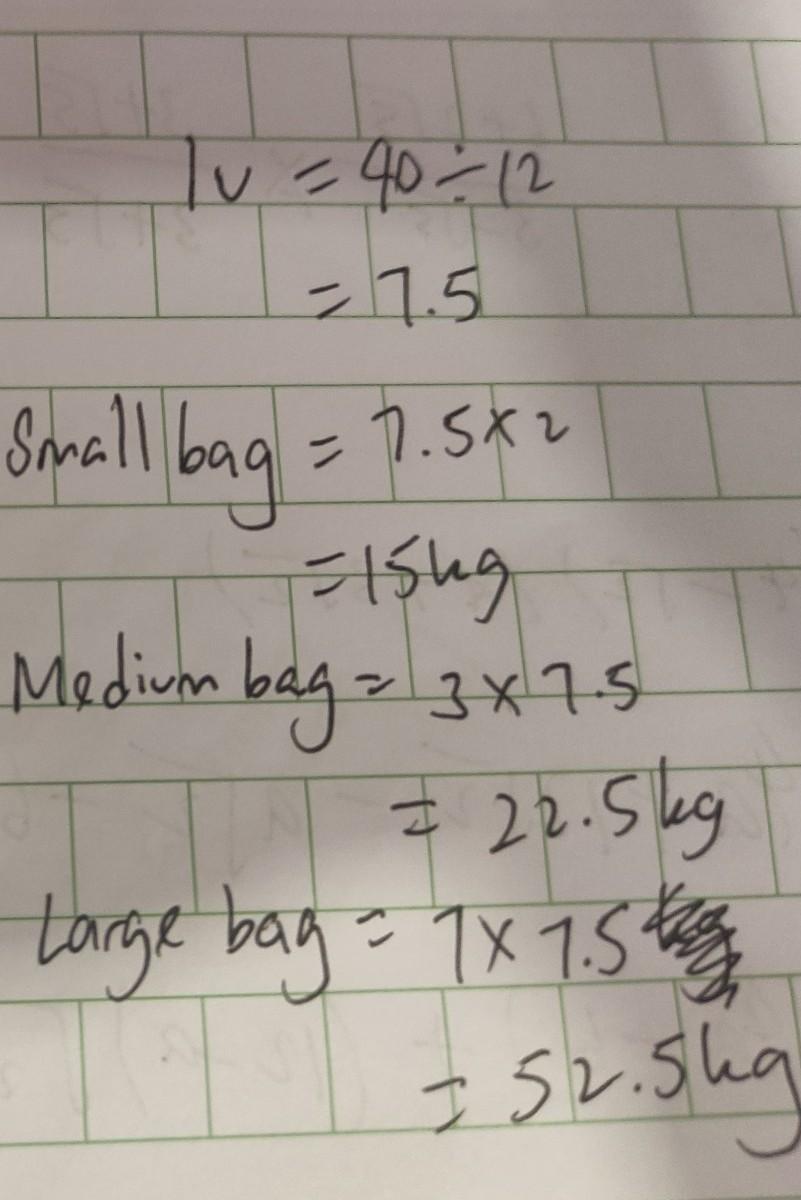 1u = 90÷12
= 7.5
Small bag = 7.5×2
=15kg
Medium bag = 3×7.5
= 22.5kg
Large bag = 7×7.5
= 52.5kg